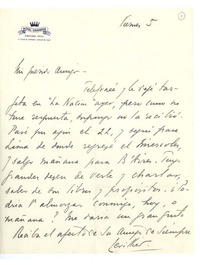 Lunes 5
Mi querido amigo -
Telefoneé y le dejé tar-
jeta en "La Nación" ayer, pero como no
tuve respuesta, supongo no la recibió.
Pasé por aquí el 22, y seguí para
Lima de donde regresé el miércoles,
y salgo mañana para B. Aires. Tengo
grandes deseos de verle y charlar,
saber de sus libros y propósitos. ¿Po-
dría Vd. almorzar conmigo, hoy, o
mañana? Me daría un gran gusto
Reciba el afecto de su amigo de siempre